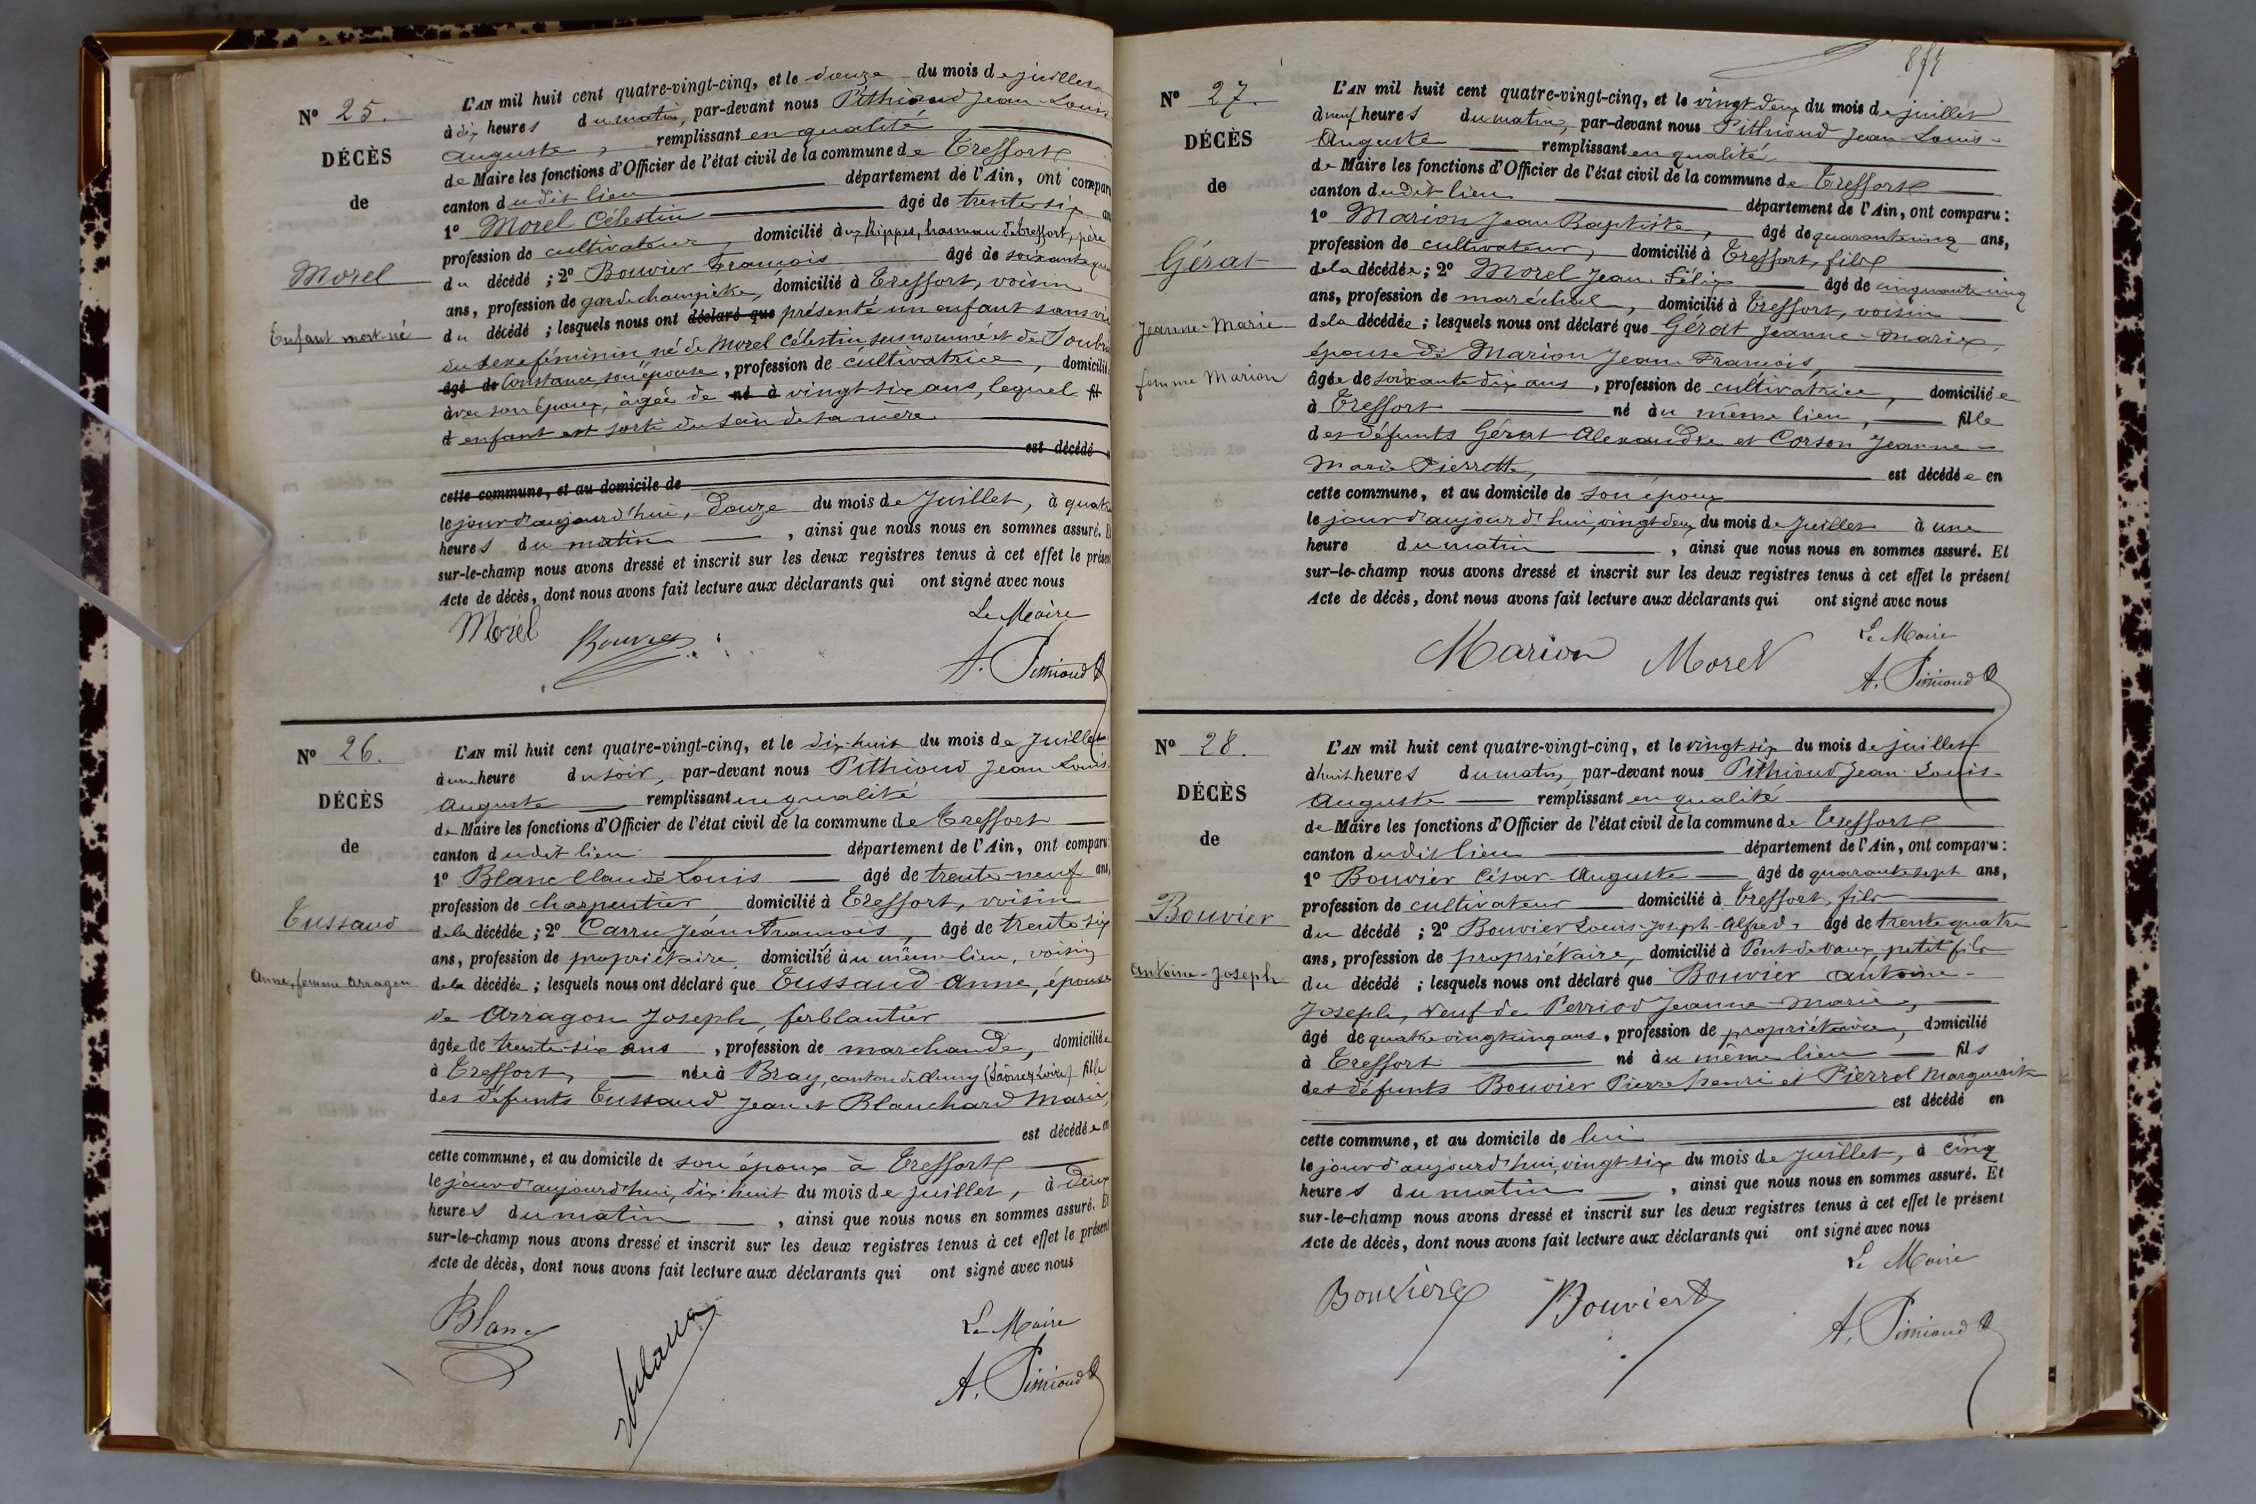 N° 25.
DÉCÈS
de
Morel
Enfant mort-né
L'AN mil huit cent quatre-vingt-cinq, et le douze du mois de juillet
à dix heures du matin, par-devant nous Pithioud Jean-Louis
Auguste, remplissant en qualité
de Maire les fonctions d'Officier de l'état civil de la commune de Treffort
canton dudit lieu département de l'Ain, ont comparu
1° Morel Célestin âgé de trente six ans
profession de cultivateur, domicilié aux Rippes, hameau de Treffort, père
du décédé ; 2° Bouvier François âgé de soixante
ans, profession de garde champêtre, domicilié à Treffort, voisin
du décédé ; lesquels nous ont déclaré que présenté un enfant sans vie
du sexe féminin, né de Morel Célestin, susnommé et de
âgé de Constance, son épouse, profession de cultivatrice, domicilié
avec son époux, âgée de né à vingt-six ans, lequel fil
d enfant est sorti du sein de sa mère.
est décédé
cette commune, et au domicile de
le jour d'aujourd'hui, douze du mois de Juillet, à quatre
heures du matin, ainsi que nous nous en sommes assuré. Et
sur-le-champ nous avons dressé et inscrit sur les deux registres tenus à cet effet le présent
Acte de décès, dont nous avons fait lecture aux déclarants qui ont signé avec nous
Le Maire
Morel
A. Pithioud
N° 26.
DÉCÈS
de
Tussaud
Anne, femme Arragon
L'AN mil huit cent quatre-vingt-cinq, et le dix-huit du mois de Juillet
à une heure du soir, par-devant nous Pithioud Jean-Louis-
Auguste remplissant en qualité
de Maire les fonctions d'Officier de l'état civil de la commune de Treffort
canton dudit lieu département de l'Ain, ont comparu :
1° Blanc Claude Louis âgé de trente-neuf ans,
profession de charpentier domicilié à Treffort, voisin
de la décédée ; 2° Carru Jean François, âgé de trente six
ans, profession de propriétaire, domicilié au même lieu, voisin
de la décédée ; lesquels nous ont déclaré que Tussaud Anne, épouse
de Arragon Joseph, ferblantier
âgée de trente-six ans, profession de marchande, domiciliée
à Treffort, née à Bray, canton de Cluny (Saône et Loire) fille
des défunts Tussaud Jean et Blanchard Marie,
est décédée en
cette commune, et au domicile de son époux à Treffort
le jour d'aujourd'hui, dix-huit du mois de juillet, à deux
heures du matin, ainsi que nous nous en sommes assuré. Et
sur-le-champ nous avons dressé et inscrit sur les deux registres tenus à cet effet le présent
Acte de décès, dont nous avons fait lecture aux déclarants qui ont signé avec nous
Blanc
Le Maire
A. Pithioud
N° 27.
DÉCÈS
de
Gérat
Jeanne-Marie
femme Marion
L'AN mil huit cent quatre-vingt-cinq, et le vingt deux du mois de juillet
à neuf heures du matin, par-devant nous Pithioud Jean-Louis-
Auguste remplissant en qualité
de Maire les fonctions d'Officier de l'état civil de la commune de Treffort
canton dudit lieu département de l'Ain, ont comparu :
1° Marion Jean Baptiste, âgé de quarante cinq ans,
profession de cultivateur, domicilié à Treffort, fils
de la décédée ; 2° Morel Jean Félix âgé de cinquante cinq
ans, profession de maréchal, domicilié à Treffort, voisin
de la décédée ; lesquels nous ont déclaré que Gérat Jeanne-Marie,
épouse de Marion Jean François,
âgée de soixante dix ans, profession de cultivatrice, domiciliée
à Treffort né au même lieu, fille
des défunts Gérat Alexandre et Corson Jeanne-
Marie Pierrette, est décédée en
cette commune, et au domicile de son époux
le jour d'aujourd'hui, vingt deux du mois de Juillet à une
heure du matin, ainsi que nous nous en sommes assuré. Et
sur-le-champ nous avons dressé et inscrit sur les deux registres tenus à cet effet le présent
Acte de décès, dont nous avons fait lecture aux déclarants qui ont signé avec nous
Marion Morel
Le Maire
A. Pithioud
N° 28.
DÉCÈS
de
Bouvier
Antoine-Joseph
L'AN mil huit cent quatre-vingt-cinq, et le vingt-six du mois de juillet
à huit heures du matin, par-devant nous Pithioud Jean-Louis-
Auguste remplissant en qualité
de Maire les fonctions d'Officier de l'état civil de la commune de Treffort
canton dudit lieu département de l'Ain, ont comparu :
1° Bouvier César-Auguste âgé de quarante sept ans,
profession de cultivateur domicilié à Treffort, fils
du décédé ; 2° Bouvier Louis-Joseph-Alfred, âgé de trente quatre
ans, profession de propriétaire, domicilié à Pont-de-Vaux, petit fils
du décédé ; lesquels nous ont déclaré que Bouvier Antoine-
Joseph, veuf de Perriod Jeanne-Marie,
âgé de quatre vingt cinq ans, profession de propriétaire, domicilié
à Treffort né au même lieu fils
des défunts Bouvier Pierre henri et Pierrel Marguerite
est décédé en
cette commune, et au domicile de lui
le jour d'aujourd'hui, vingt-six du mois de juillet, à cinq
heures du matin, ainsi que nous nous en sommes assuré. Et
sur-le-champ nous avons dressé et inscrit sur les deux registres tenus à cet effet le présent
Acte de décès, dont nous avons fait lecture aux déclarants qui ont signé avec nous
Le Maire
Bouvier Bouvier
A. Pithioud